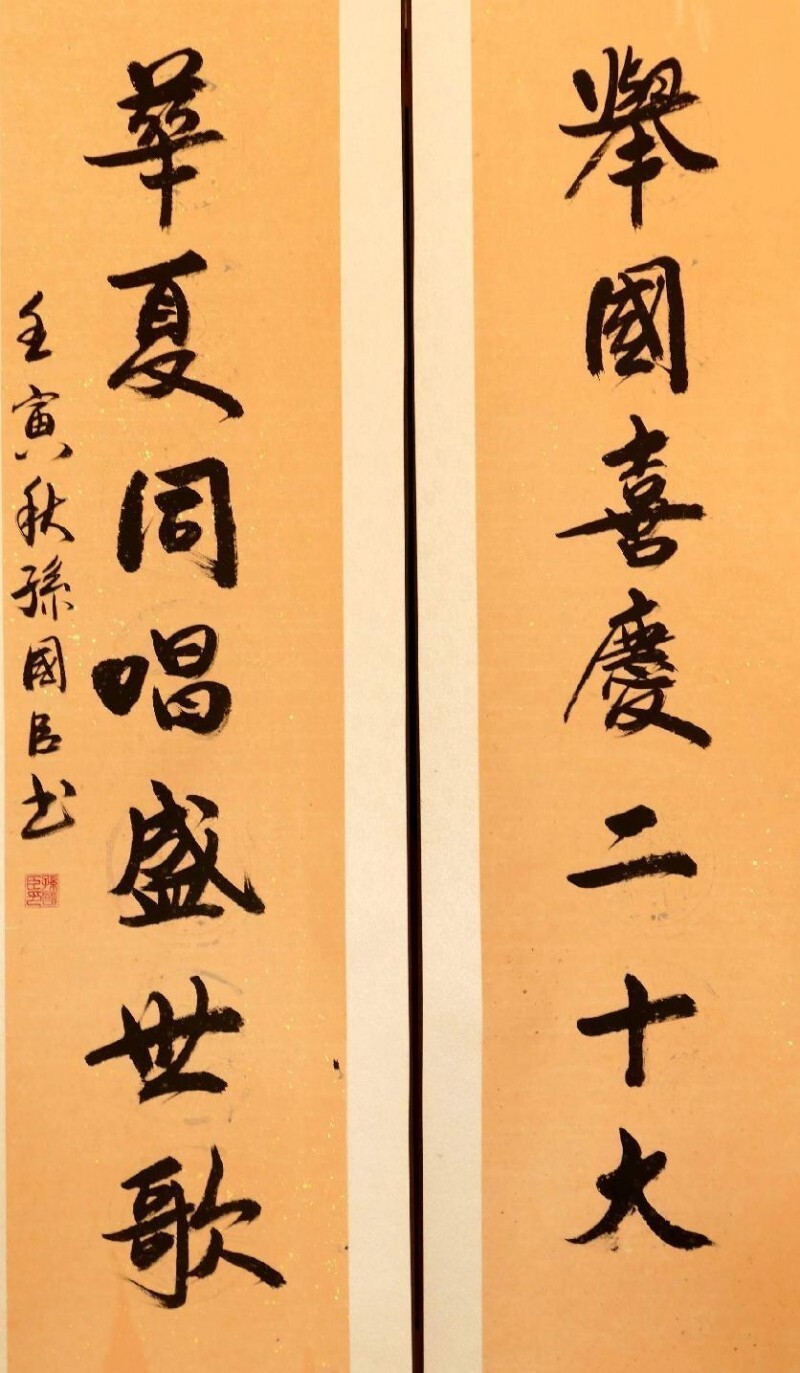 舉國喜慶二十大
華夏同唱盛世歌
壬寅秋孫國臣书
孫國臣印